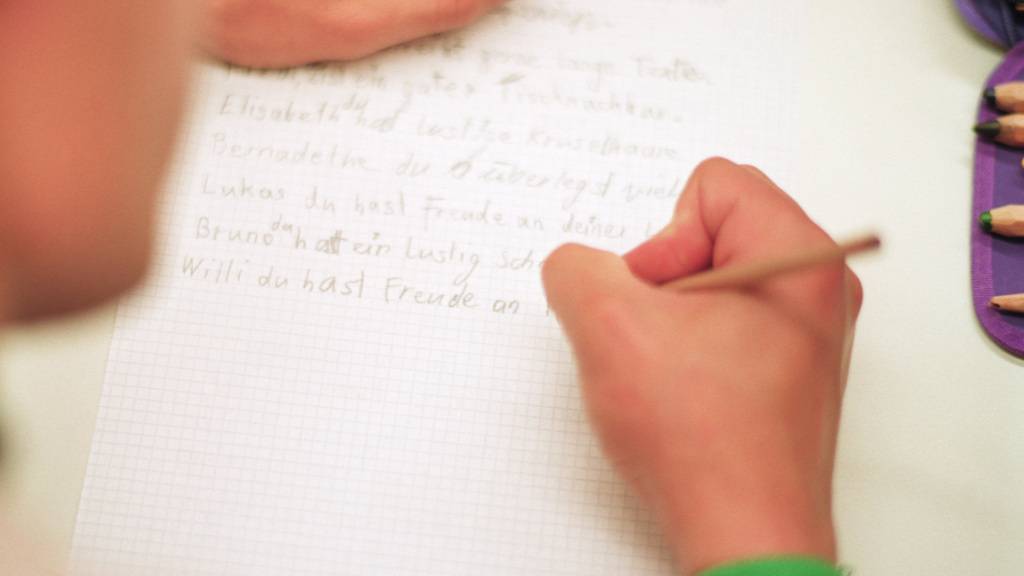 gerne lange Texte
guter Tischnachbar.
Elisabeth du hast lustige Kruselhaare
Bernadethe du überlegst viel
Lukas du hast Freude an deiner
Bruno du hast ein Lustig
Willi du hast Freude an